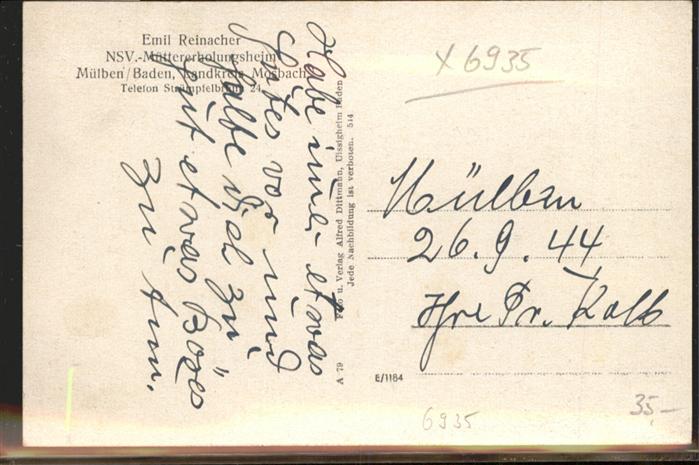 Emil Reinacher
NSV.-Müttererholungsheim
Mülben/Baden, Landkreis Mosbach
Telefon Strümpfelbrunn 24
Habe immer etwas
Gutes vor und
halte dich zu
gut etwas Böses
zu tun.
Foto u. Verlag Alfred Dittmann, Uissigheim Baden
Jede Nachbildung ist verboten. 514
A 79
E/1184
x 6935
Mülben
26.9.44
Ihre Fr. Kolb
6935
35,-